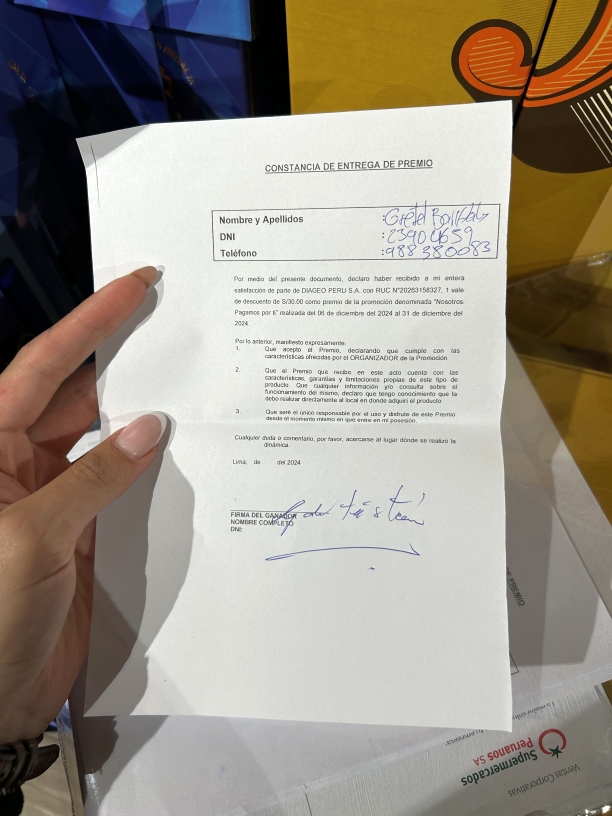 CONSTANCIA DE ENTREGA DE PREMIO
Nombre y Apellidos : Gretel
DNI : 23904659
Teléfono : 988380083
Por medio del presente documento, declaro haber recibido a mi entera
satisfacción de parte de DIAGEO PERU S.A. con RUC N°20263158327, 1 vale
de descuento de S/30.00 como premio de la promoción denominada "Nosotros
Pagamos por ti" realizada del 06 de diciembre del 2024 al 31 de diciembre del
2024.
Por lo anterior, manifiesto expresamente:
1. Que acepto el Premio, declarando que cumple con las
características ofrecidas por el ORGANIZADOR de la Promoción
2. Que el Premio que recibo en este acto cuenta con las
características, garantías y limitaciones propias de este tipo de
producto. Que cualquier información y/o consulta sobre el
funcionamiento del mismo, declaro que tengo conocimiento que la
debo realizar directamente al local en donde adquirí el producto
3. Que seré el único responsable por el uso y disfrute de este Premio
desde el momento mismo en que entre en mi posesión.
Cualquier duda o comentario, por favor, acercarse al lugar dónde se realizó la
dinámica.
Lima, de del 2024
FIRMA DEL GANADOR
NOMBRE COMPLETO
DNI:
DE PREMIO
Supermercados
Peruanos SA
Ventas Corporativas